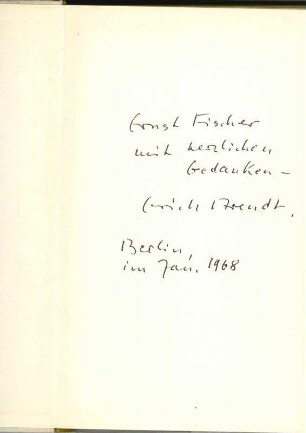 Ernst Fischer
mit herzlichen
Gedanken –
Erich Arendt,
Berlin,
im Jan. 1968